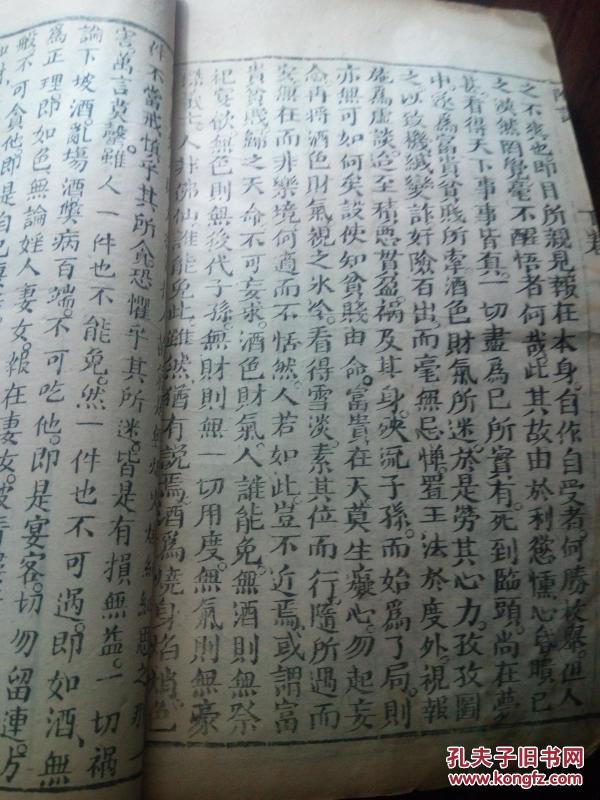 之不爽也即目所親見報在本身自作自受者何勝枚舉但人
之漠然罔覺毫不醒悟者何哉此其故由於利慾
甚看得天下事事皆真一切盡爲已所實有死到臨頭尚在夢
中遂爲富貴貧賤所牽酒色財氣所迷於是勞其心力孜孜圖
之以致機緘變詐奸險百出而毫無忌憚置王法於度外視報
應爲虛談迨至積惡貫盈禍及其身殃流子孫而始爲了局則
亦無可如何矣設使知貧賤由命富貴在天莫生癡心勿起妄
念再將酒色財氣視之氷冷看得雪淡素其位而行隨所遇而
安無在而非樂境何適而不恬然人若如此豈不近焉或謂富
貴貧賤歸之天命不可妄求酒色財氣人誰能免無酒則無祭
祀宴飲無色則無後代子孫無財則無一切用度無氣則無豪
人非佛仙誰能免此雖然猶有說焉酒爲燒身焰硝色
害萬言莫罄雖人一件也不能免然一件也不可過即如酒無
件不當戒慎乎其所貪恐懼乎其所迷皆是有損無益一切禍
論下坡酒亂場酒獎病百端不可吃他即是宴客切勿留連方
爲正理即如色無論婬人妻女報在妻女
般不可貪他即是自已
孔夫子旧书网
www.kongfz.com